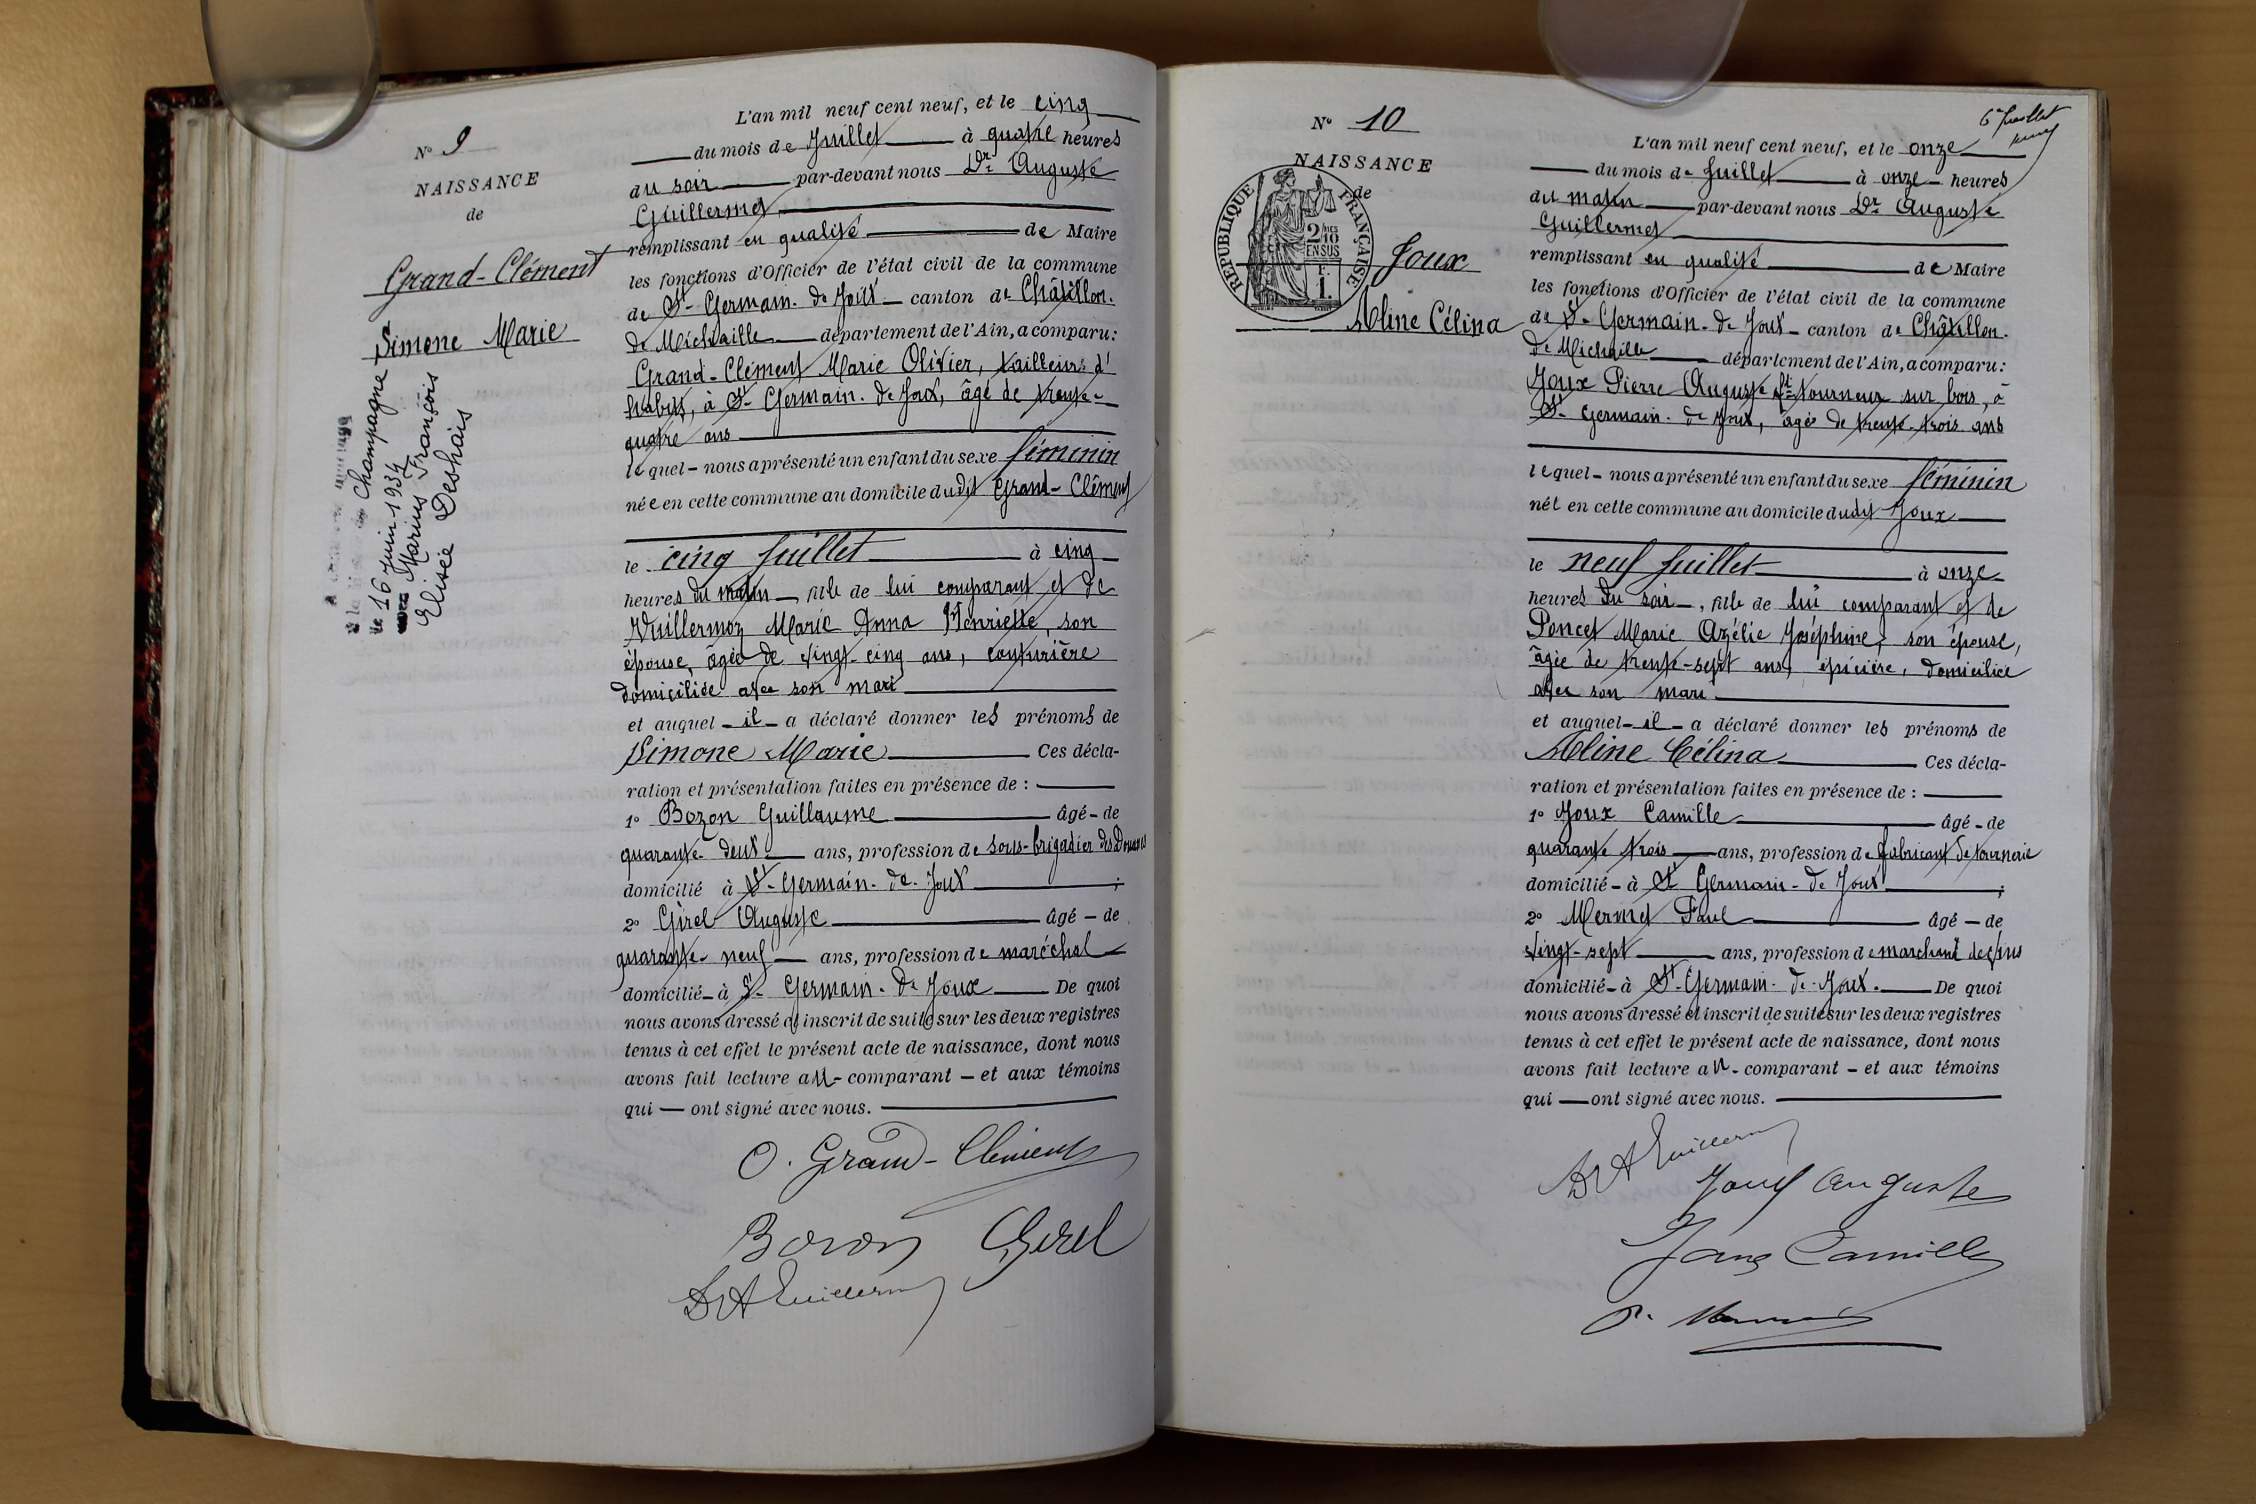 N° 9
NAISSANCE
de
Grand-Clément
Simone Marie
Champagne
le 16 juin 1934
avec Marius François
Elisée Deshais
L'an mil neuf cent neuf, et le cinq
du mois de Juillet à quatre heures
du soir par-devant nous Dr Auguste
Guillermet
remplissant en qualité de Maire
les fonctions d'Officier de l'état civil de la commune
de St-Germain-de-Joux canton de Châtillon-
de Michaille département de l'Ain, a comparu:
Grand-Clément Marie Olivier, tailleur d'
habits, à St-Germain-de-Joux, âgé de trente-
quatre ans
lequel nous a présenté un enfant du sexe féminin
née en cette commune au domicile dudit Grand-Clément
le cinq Juillet à cinq
heures du matin, fille de lui comparant et de
Vuillermoz Marie Anna Henriette, son
épouse, âgée de vingt-cinq ans, couturière
domiciliée avec son mari
et auquel il a déclaré donner les prénoms de
Simone Marie Ces décla-
ration et présentation faites en présence de :
1° Bozon Guillaume âgé de
quarante-deux ans, profession de sous-brigadier des Douanes
domicilié à St-Germain-de-Joux ;
2° Girel Auguste âgé de
quarante-neuf ans, profession de maréchal
domicilié à St-Germain-de Joux De quoi
nous avons dressé et inscrit de suite sur les deux registres
tenus à cet effet le présent acte de naissance, dont nous
avons fait lecture au comparant et aux témoins
qui ont signé avec nous.
O. Grand-Clément
Bozon Girel
Dr A Guillermet
N° 10
NAISSANCE
de
RÉPUBLIQUE FRANÇAISE
2/10 EN SUS
F. 1.
Joux
Aline Célina
6 Juillet
L'an mil neuf cent neuf, et le onze
du mois de Juillet à onze heures
du matin par-devant nous Dr Auguste
Guillermet
remplissant en qualité de Maire
les fonctions d'Officier de l'état civil de la commune
de St-Germain-de Joux canton de Châtillon-
de Michaille département de l'Ain, a comparu:
Joux Pierre Auguste tourneur sur bois, à
St-Germain-de Joux, âgé de trente-trois ans
lequel nous a présenté un enfant du sexe féminin
née en cette commune au domicile dudit Joux
le neuf Juillet à onze
heures du soir, fille de lui comparant et de
Poncet Marie Azélie Joséphine, son épouse,
âgée de trente-sept ans, épicière, domiciliée
avec son mari
et auquel il a déclaré donner les prénoms de
Aline Célina Ces décla-
ration et présentation faites en présence de :
1° Joux Camille âgé de
quarante trois ans, profession de fabricant de tournerie
domicilié à St Germain-de Joux ;
2° Mermet Paul âgé de
vingt-sept ans, profession de marchand de vins
domicilié à St-Germain-de-Joux. De quoi
nous avons dressé et inscrit de suite sur les deux registres
tenus à cet effet le présent acte de naissance, dont nous
avons fait lecture au comparant et aux témoins
qui ont signé avec nous.
Dr A Guillermet
Joux Auguste
Joux Camille
P. Mermet